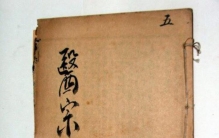 五
醫宗